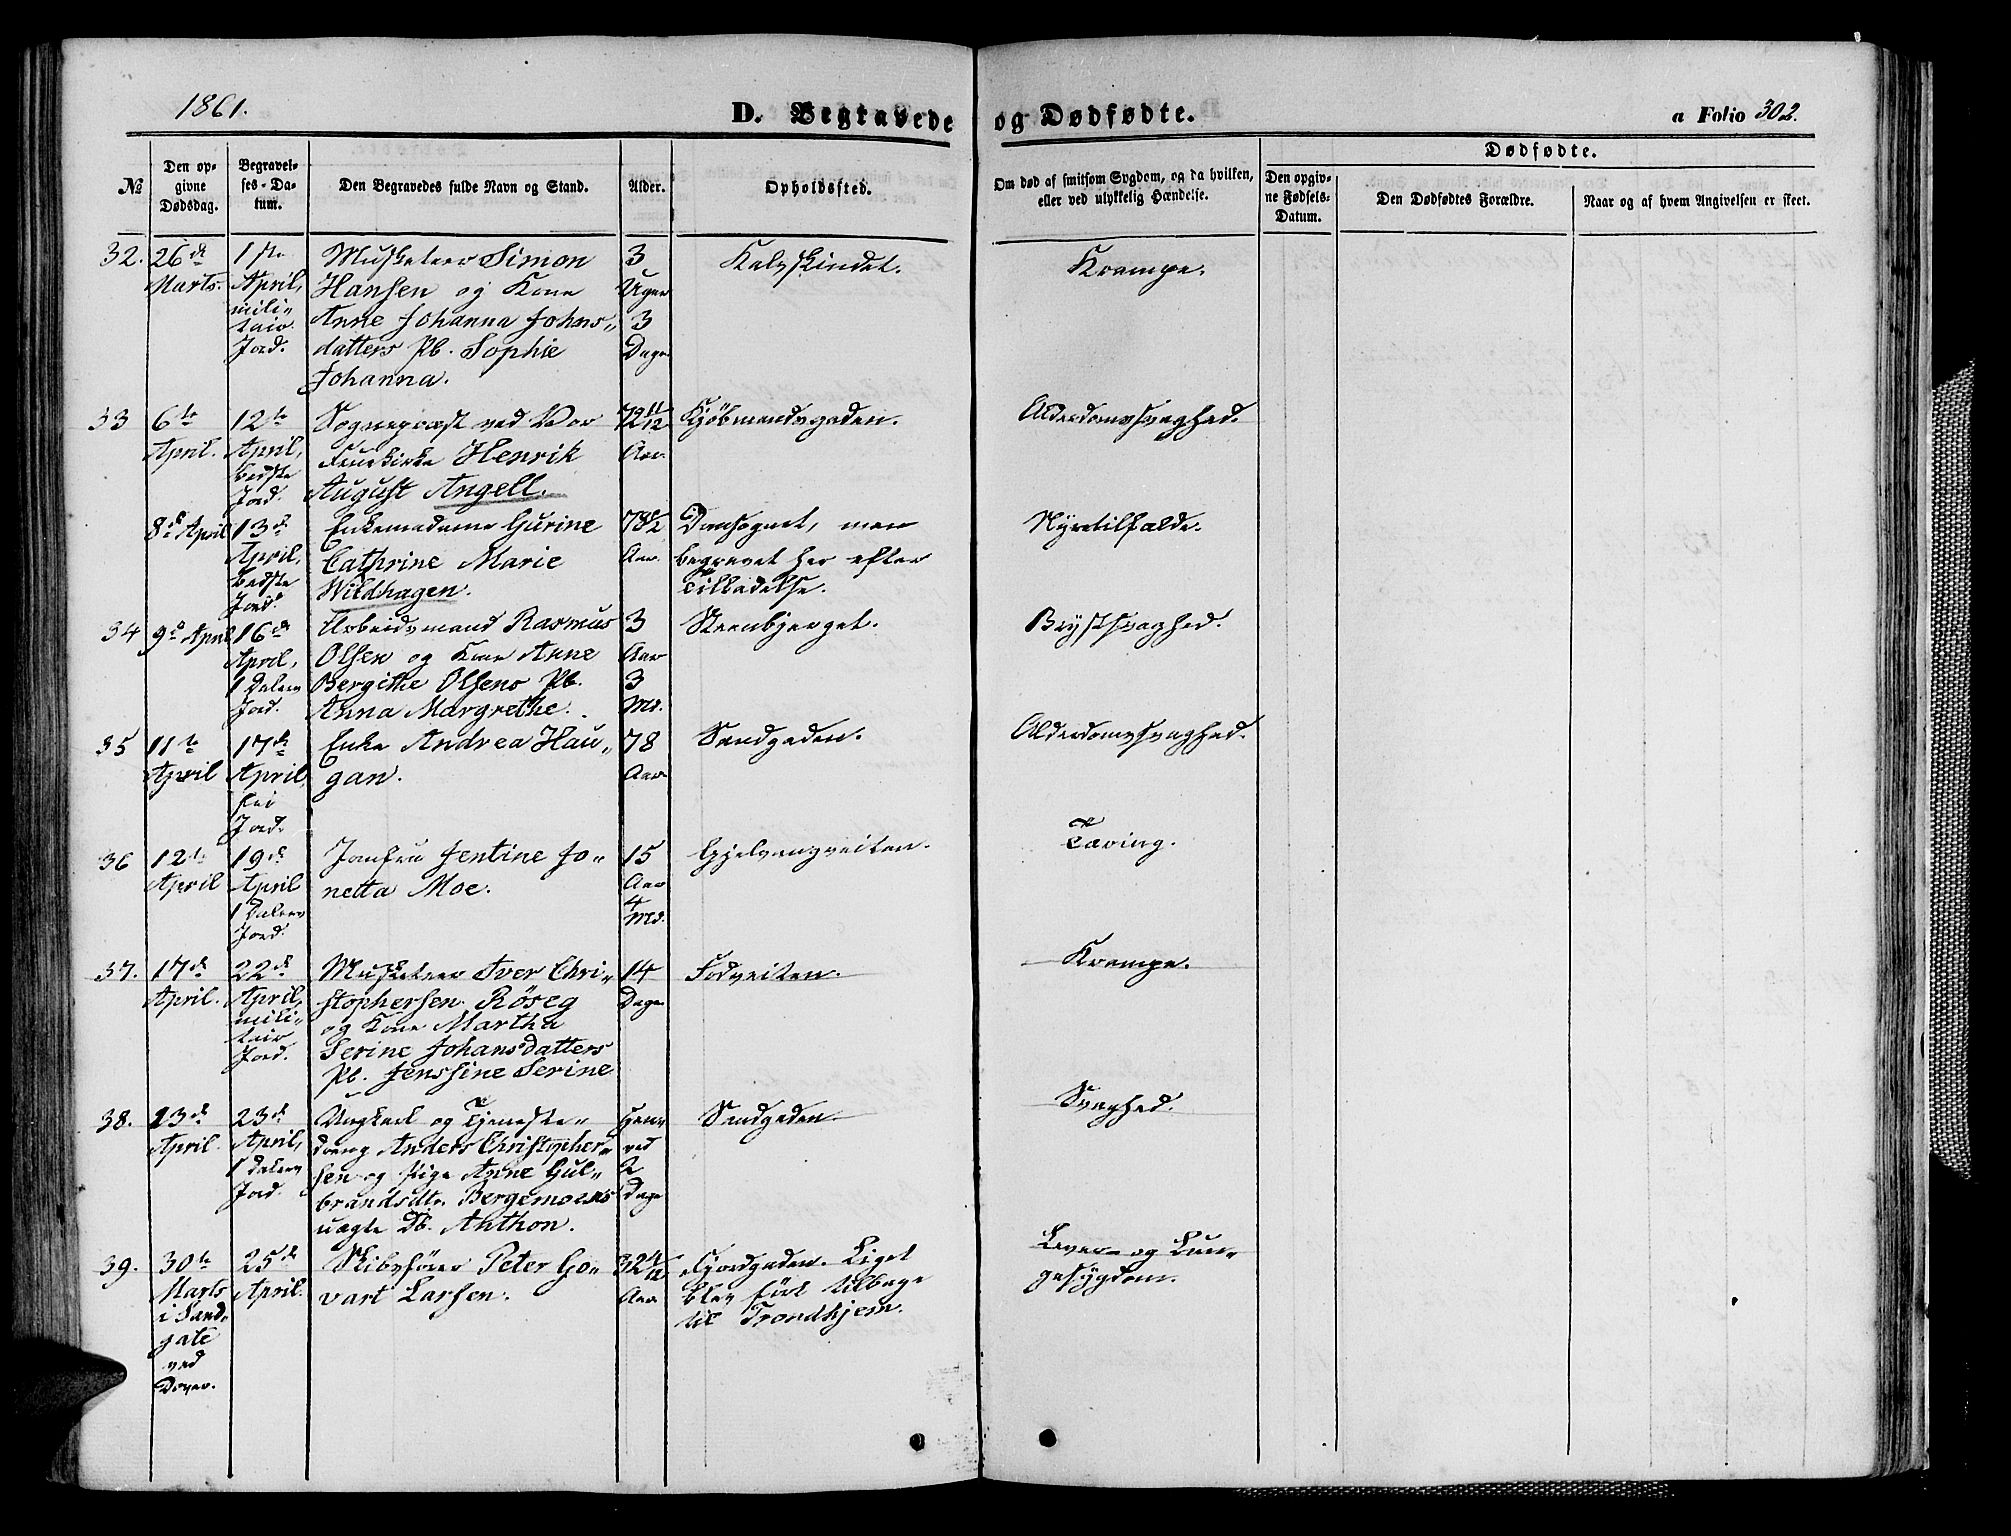 1861.
D. Begravede og Dødfødte.
a Folio 302.
№
Den opgivne Dødsdag.
Begravelses-Datum.
Den Begravedes fulde Navn og Stand.
Alder.
Opholdssted.
Om død af smitsom Sygdom, og da hvilken, eller ved ulykkelig Hændelse.
Dødfødte.
Den opgivne Fødsels-Datum.
Den Dødfødtes Forældre.
Naar og af hvem Angivelsen er skeet.
32.
26de
Marts.
1ste
April,
mili-
tair
Jord.
Musketeer Simon
Hansen og Kone
Anne Johanna Johns-
datters Pb. Sophie
Johanna.
3
Uger
3
Dage
Kalvskindet.
Krampe.
33
6te
April.
12te
April,
bedste
Jord.
Sognepræst ved Vor
Fruekirke Henrik
August Angell.
72 11/12
Aar
Kjöbmandsgaden.
Alderdomssvaghed.
8de April
13de
April,
bedste
Jord.
Enkemadame Gurine
Cathrine Marie
Wildhagen.
78½
Aar.
Domsognet, men
begravet her efter
Tilladelse.
Nyretilfælde.
34
9de April
16de
April,
1 Dalers
Jord.
Arbeidsmand Rasmus
Olsen og Kone Anne
Bergithe Olsens Pb.
Anna Margrethe.
3
Aar
3
Md.
Steenbjerget.
Brystsvaghed.
35
11te
April
17de
April,
fri
Jord.
Enke Andrea Hau-
gan.
78
Aar
Sandgaden.
Alderdomssvaghed.
36
12te
April
19de
April
1 Dalers
Jord.
Jomfru Jentine Jo-
netta Moe.
15
Aar
4
Md.
Gjelvangveiten.
Tæring.
37.
17de
April.
22de
April,
mili-
tair
Jord.
Musketeer Iver Chri-
stophersen Röseg
og Kone Martha
Serine Johansdatters
Pb. Jenssine Serine
14
Dage
Fodveiten.
Krampe.
38.
13de
April.
23de
April,
1 Dalers
Jord.
Ungkarl og Tjeneste-
dreng Anders Christopher-
sen og Pige Anne Gul-
brandsdtr. Bergemoens
uægte Db. Anthon.
Henved
2
Dage
Sandgaden.
Svaghed.
39.
30te
Marts
i Sand-
gate
ved
Dover.
25de
April.
Skibsförer Peter Go-
vart Larsen.
32 4/12
Aar
Fjordgaden. Liget
blev fört tilbage
til Trondhjem.
Lever- og Lun-
gesygdom.